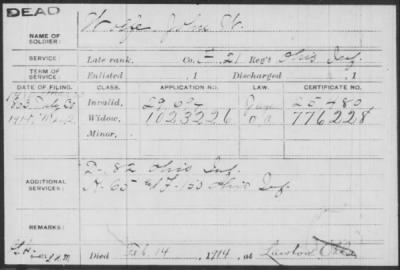 DEAD
NAME OF SOLDIER: Wolfe John W.
SERVICE: Late rank, Co. F-21 Reg't Ohio Inf.
TERM OF SERVICE: Enlisted , 1 Discharged , 1
DATE OF FILING. CLASS. APPLICATION NO. LAW. CERTIFICATE NO.
1863 July 30 Invalid, 29.692 25.480
1914 Widow, 1023226 776228
Minor,
ADDITIONAL SERVICES: Ohio Inf.
K-65 & F-153 Ohio Inf.
REMARKS:
Died Feb. 14, 1914, at